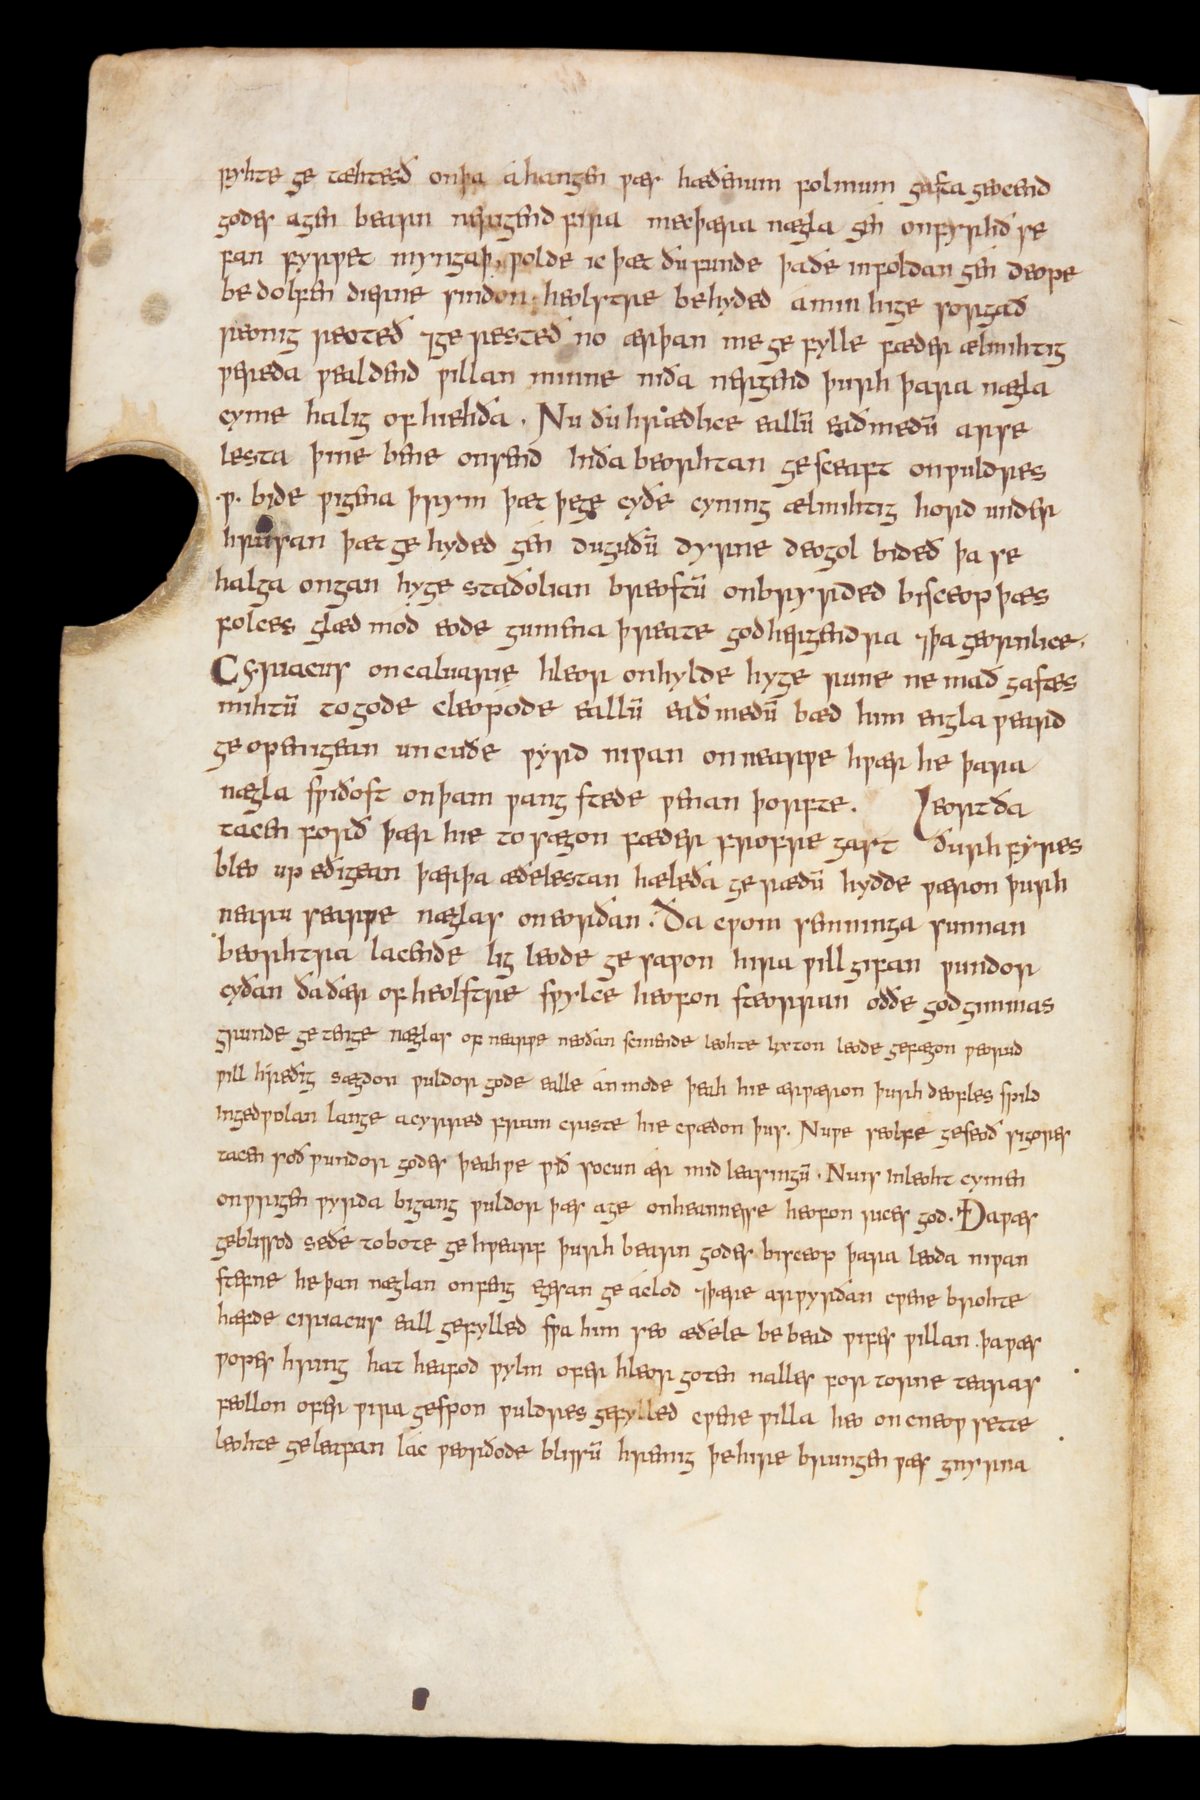 ryhte ge tæhtesð onþa ahangen ƿæs hæðenum folmum gasta geocend
godes agen bearn nerigend fira mec þæra nægla gen on fyrhð se
fan fyrƿet myngaþ, ƿolde ic þæt ðu funde þa ðe in foldan gen deope
be dolfen dierne sindon heolstre behyded a min hige sorgað
reonig reoteð ⁊ge resteð no ærþan me ge fylle fæder ælmihtig
ƿereda ƿealdend ƿillan minne niða nergend þurh þara nægla
cyme halig of hiehða. Nu ðu hrædlice eallū eaðmedū ar se
lesta þine bene onsend in ða beorhtan ge sceaft on ƿuldres
.ƿ. bide ƿigena þrym þæt þe ge cyðe cyning ælmihtig hord under
hrusan þæt ge hyded gen duguðū dyrne deogol bideð þa se
halga ongan hyge staðolian breostū onbryrded bisceop þæs
folces glæd mod eode gumena þreate god hergendra ⁊þa geornlice.
Cyriacus on caluarie hleor onhylde hyge rune ne mað gastes
mihtū to gode cleopode eallū eað medū bæd him engla ƿeard
ge openigean uncuðe ƿyrd niƿan on nearƿe hƿær he þara
nægla sƿiðost on þam ƿang stede ƿenan þorfte. Leort ða
tacen forð þær hie to sægon fæder frofre gast ðurh fyres
bleo up eðigean þær þa æðelestan hæleða ge rædū hydde ƿæron þurh
nearu searƿe næglas on eorðan. Ða cƿom semninga sunnan
beorhtra lacende lig leode ge saƿon hira ƿill gifan ƿundor
cyðan ða ðær of heolstre sƿylce heofon steorran oððe god gimmas
grunde ge tenge næglas of nearƿe neoðan scinende leohte lixton leode gefægon ƿeorud
ƿill hreðig sægdon ƿuldor gode ealle an mode þeah hie ær ƿæron þurh deofles spild
in gedƿolan lange acyrred fram criste hie cƿædon þus. Nu ƿe seolfe geseoð sigores
tacen soð ƿundor godes þeah ƿe ƿið socun ær mid leasingū. Nu is in leoht cymen
onƿrigen ƿyrda bigang ƿuldor þæs age on heannesse heofon rices god. Ða ƿæs
geblissod se ðe to bote ge hƿearf þurh bearn godes bisceop þara leoda niƿan
stefne he þan næglan onfeng egesan ge aclod ⁊þære arƿyrðan cƿene brohte
hæfde ciriacus eall gefylled sƿa him seo æðele be bead ƿifes ƿillan. þa ƿæs
ƿopes hring hat heafod ƿylm ofer hleor goten nalles for torne tearas
feollon ofer ƿira gespon ƿuldres gefylled cƿene ƿilla heo on cneoƿ sette
leohte geleafan lac ƿeorðode blissū hremig þe hire brungen ƿæs gnyrna